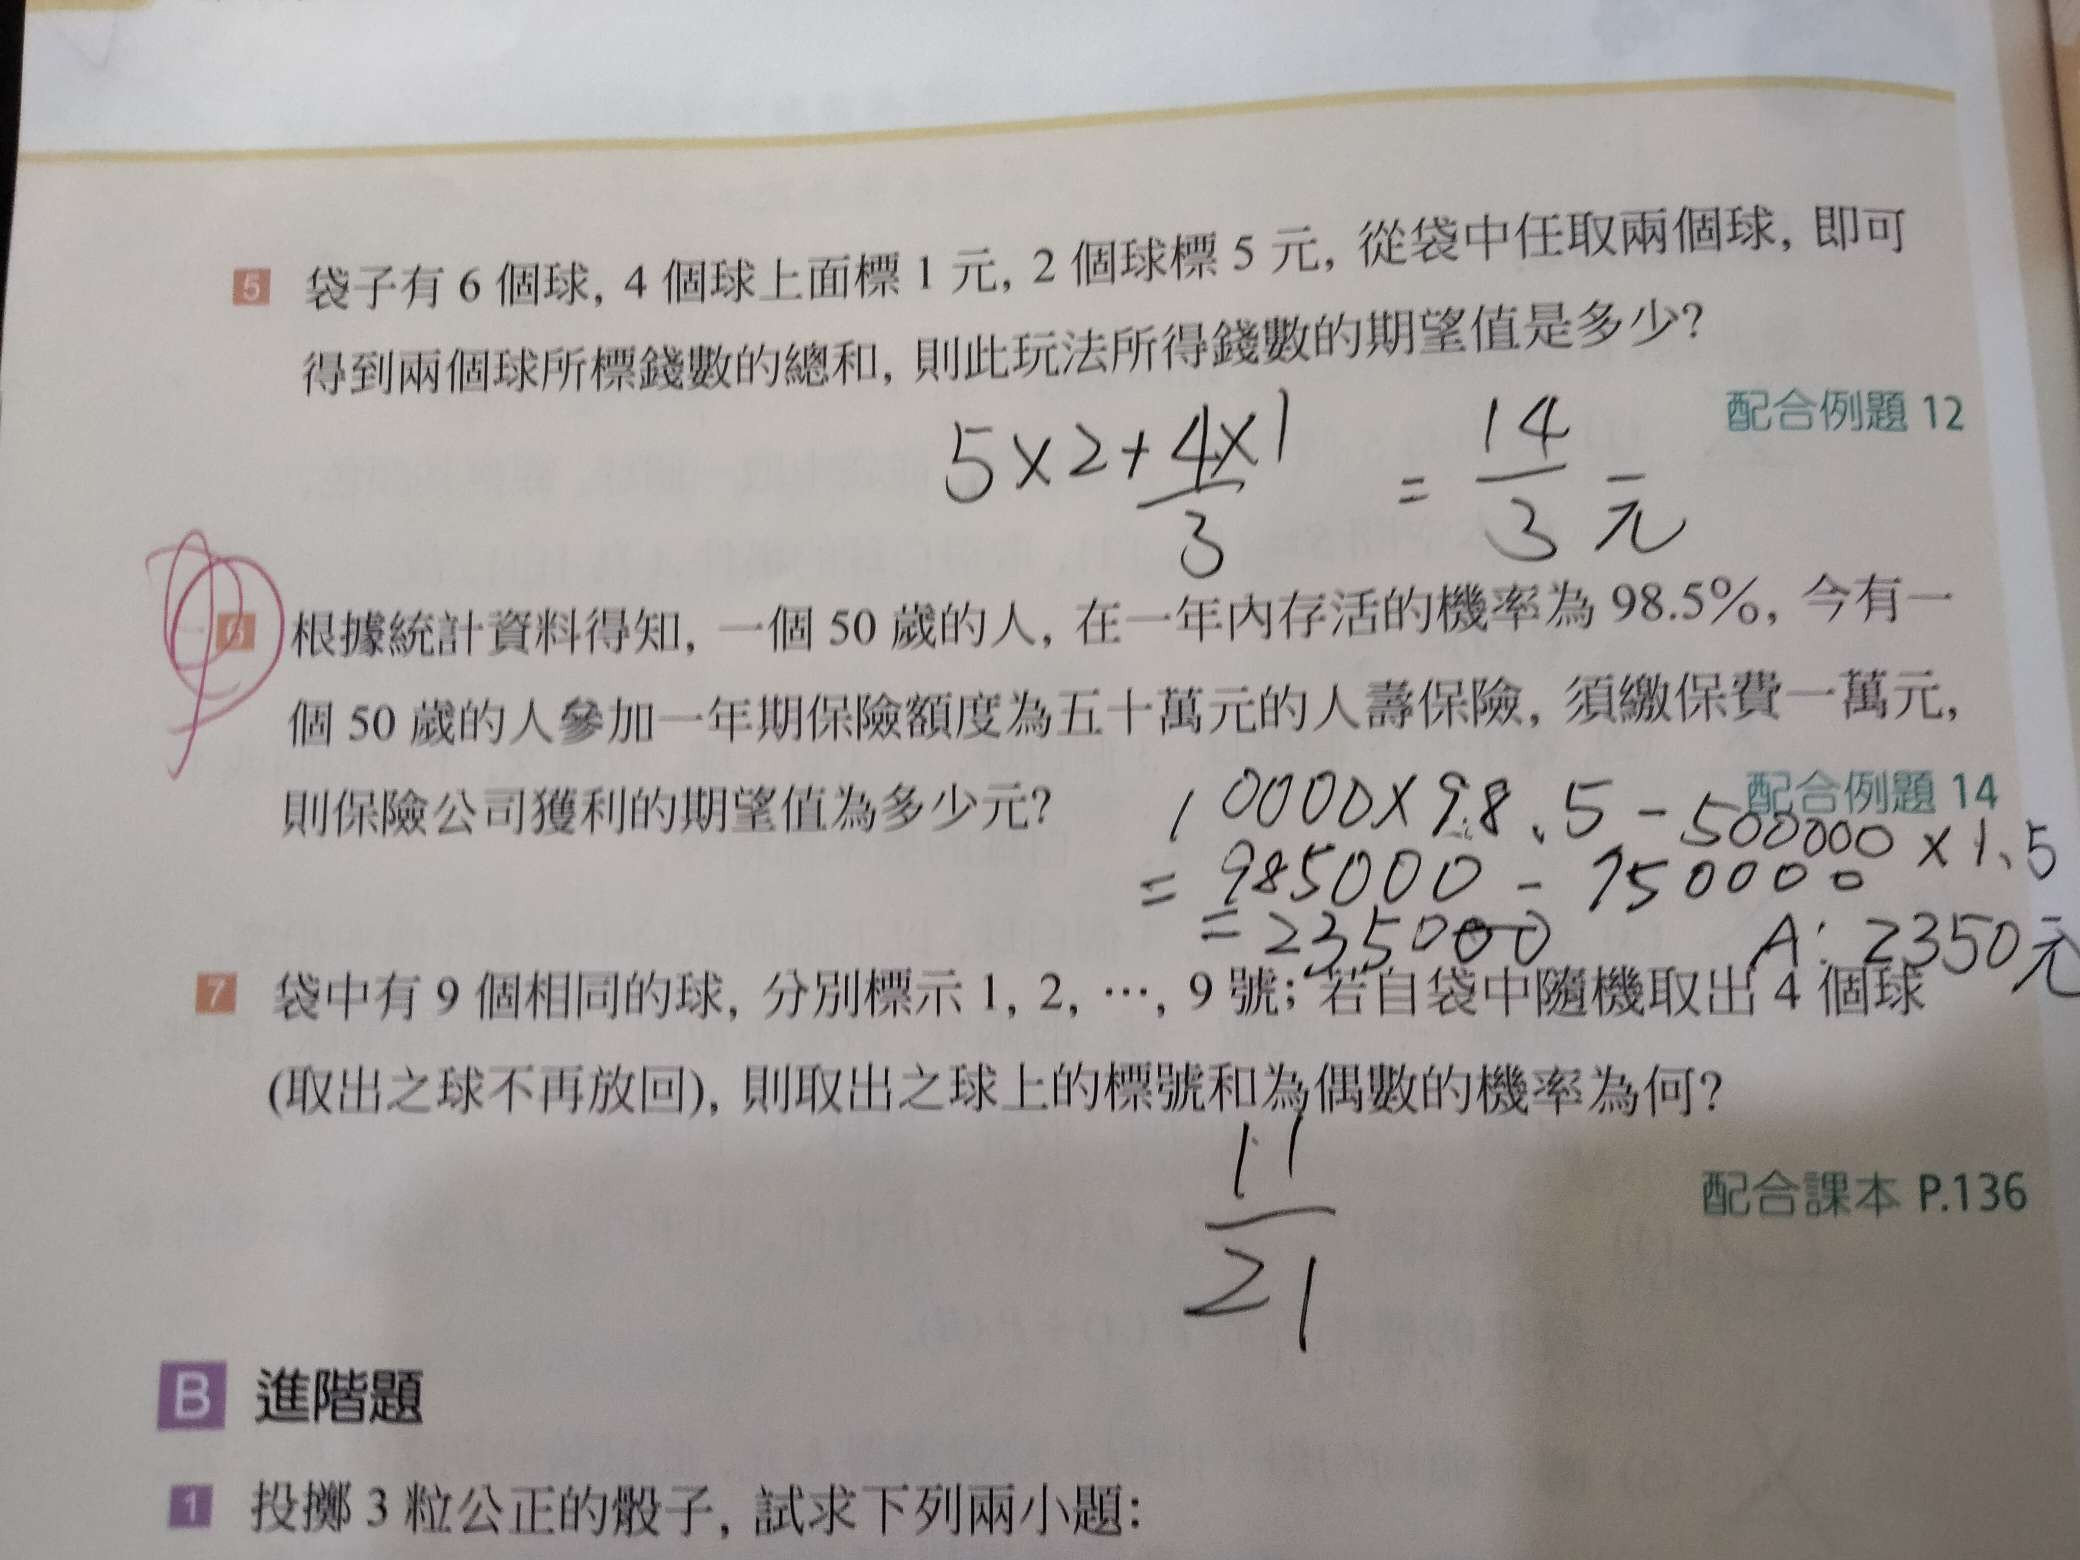 5 袋子有 6 個球, 4 個球上面標 1 元, 2 個球標 5 元, 從袋中任取兩個球, 即可
得到兩個球所標錢數的總和, 則此玩法所得錢數的期望值是多少?
配合例題 12
5×2+4×1 = 14
3 3 元
6 根據統計資料得知, 一個 50 歲的人, 在一年內存活的機率為 98.5%, 今有一
個 50 歲的人參加一年期保險額度為五十萬元的人壽保險, 須繳保費一萬元,
則保險公司獲利的期望值為多少元?
配合例題 14
10000×98.5-500000×1.5
=985000-750000
=235000 A: 2350元
7 袋中有 9 個相同的球, 分別標示 1, 2, …, 9 號; 若自袋中隨機取出 4 個球
(取出之球不再放回), 則取出之球上的標號和為偶數的機率為何?
11
21
配合課本 P.136
B 進階題
1 投擲 3 粒公正的骰子, 試求下列兩小題: